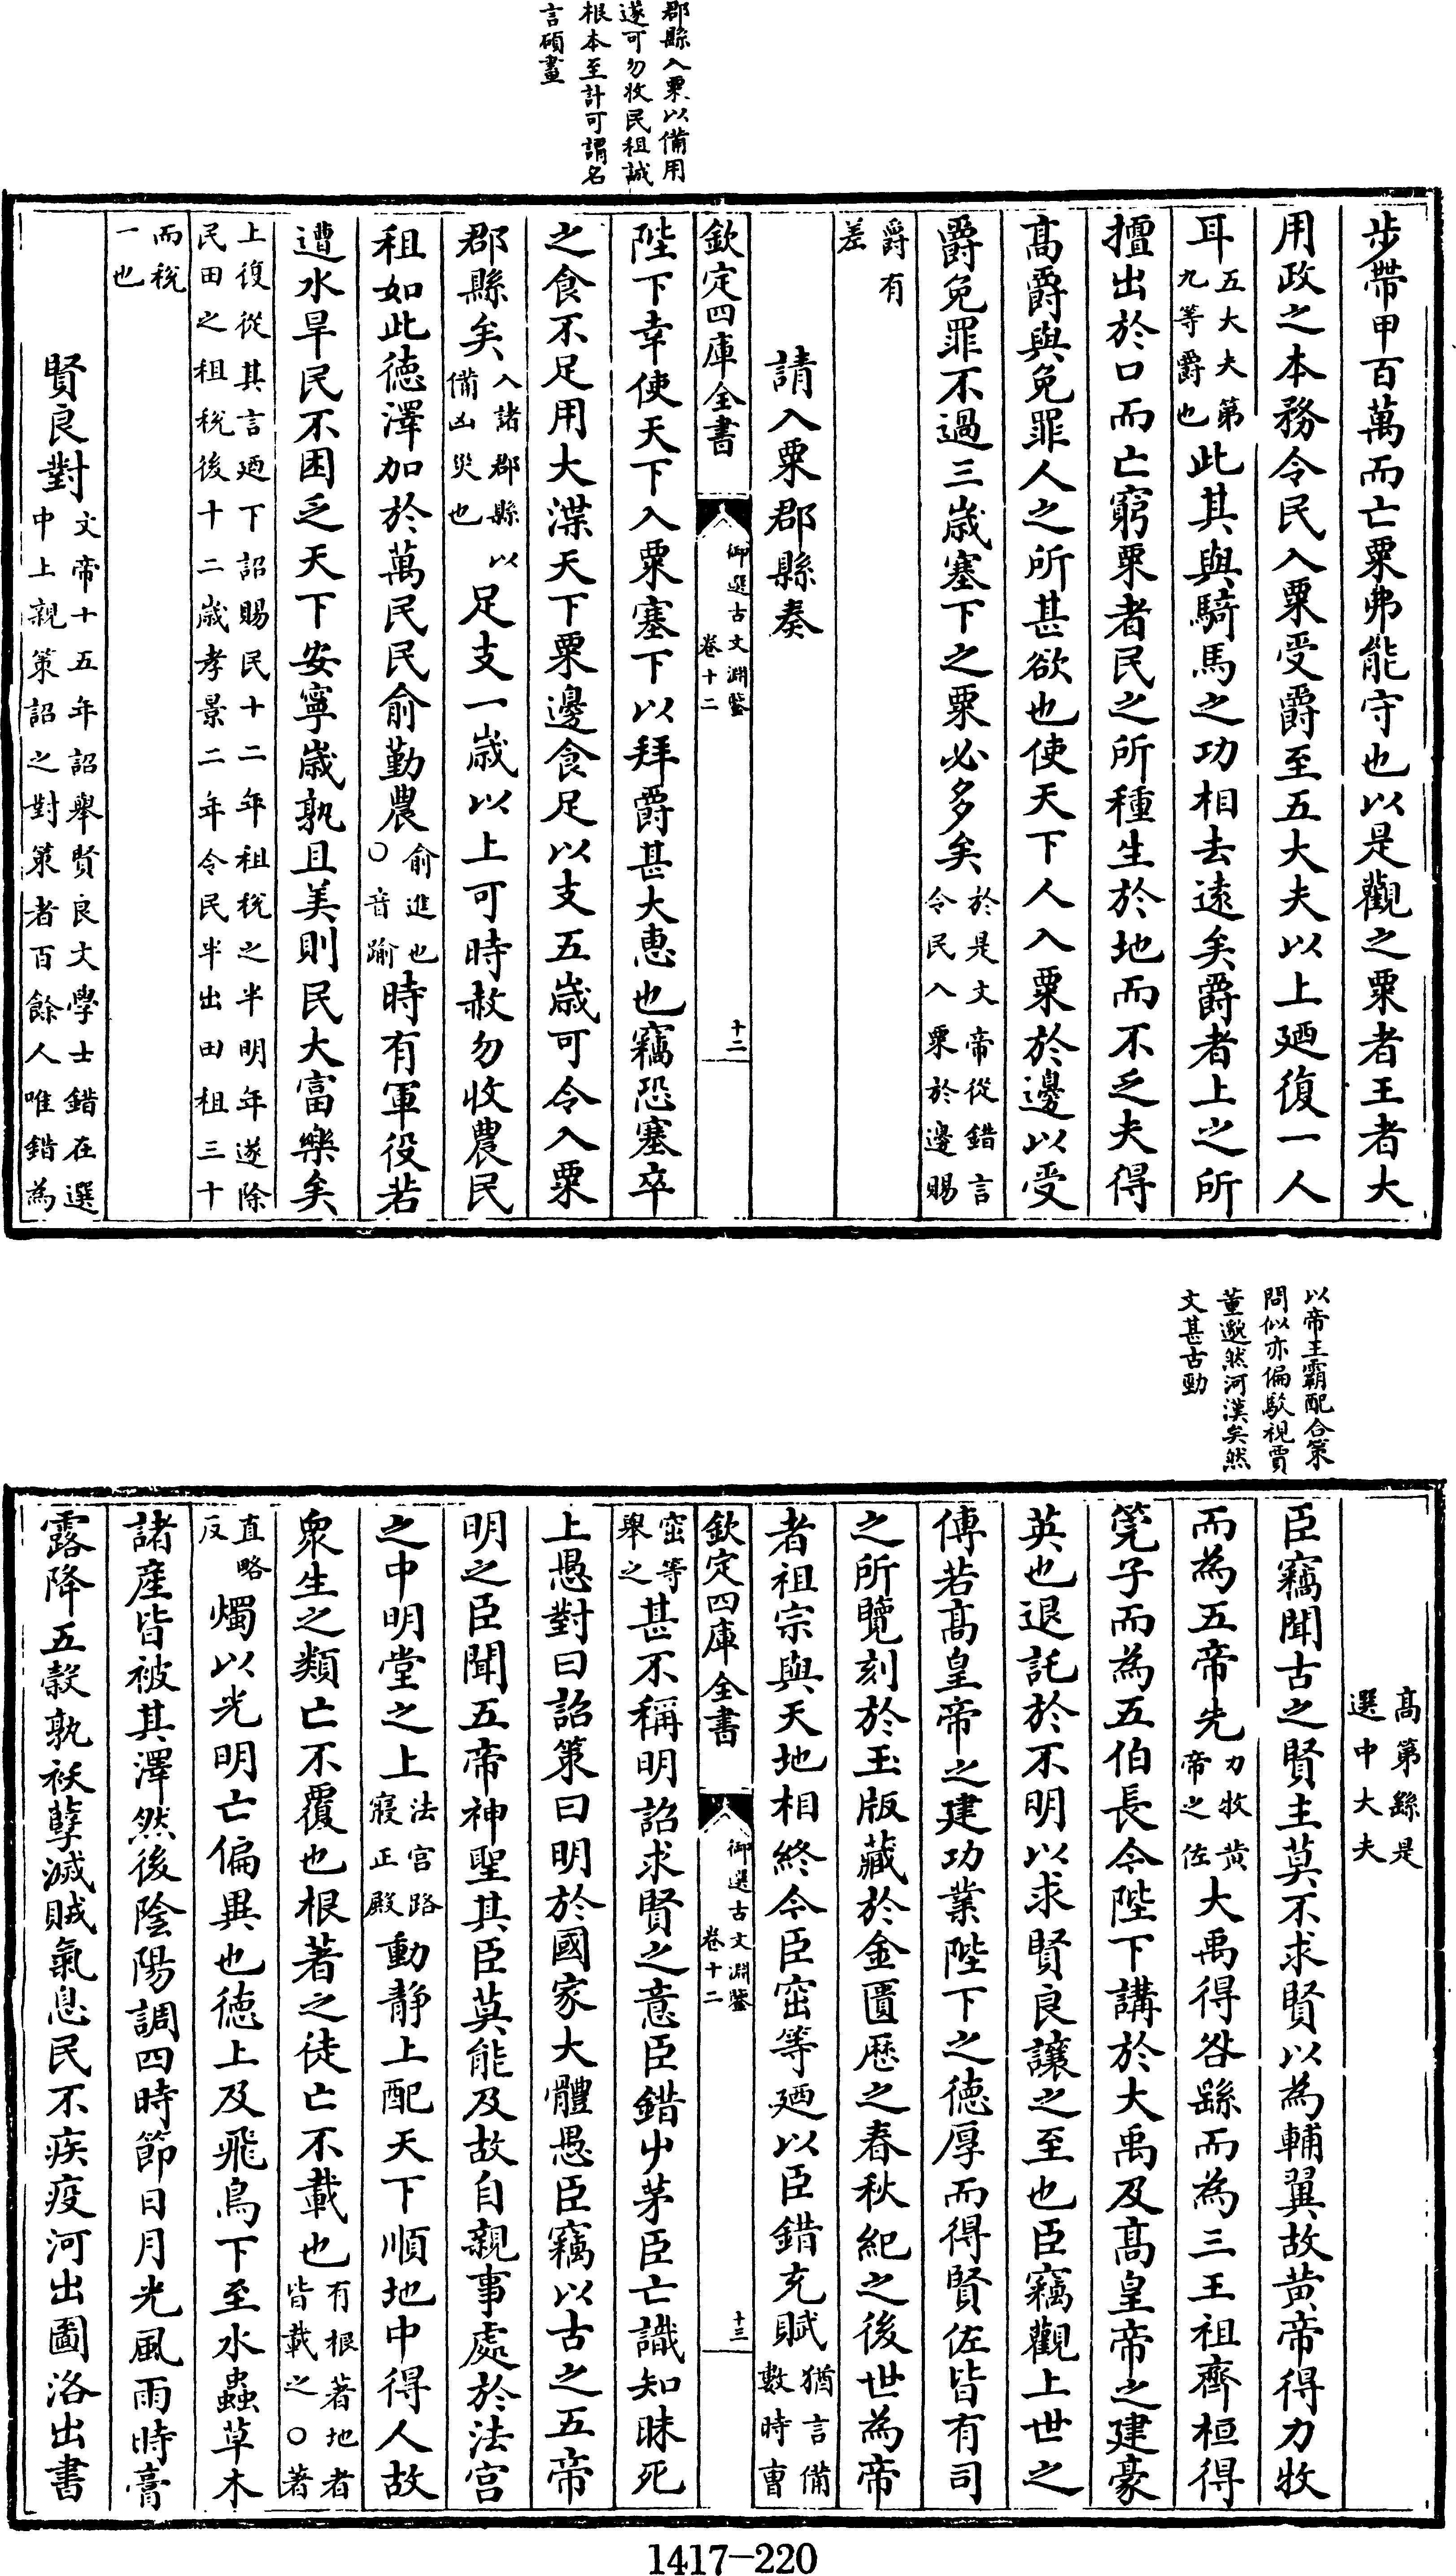 郡縣入粟以備用
遂可勿收民租誠
根本至計可謂名
言碩畫
步帶甲百萬而亡粟弗能守也以是觀之粟者王者大
用政之本務令民入粟受爵至五大夫以上廼復一人
耳五大夫第九等爵也此其與騎馬之功相去遠矣爵者上之所
擅出於口而亡窮粟者民之所種生於地而不乏夫得
高爵與免罪人之所甚欲也使天下人入粟於邊以受
爵免罪不過三歲塞下之粟必多矣於是文帝從錯言令民入粟於邊賜
爵有差
請入粟郡縣奏
欽定四庫全書 御選古文淵鑒 卷十二 十二
陛下幸使天下入粟塞下以拜爵甚大惠也竊恐塞卒
之食不足用大渫天下粟邊食足以支五歲可令入粟
郡縣矣入諸郡縣以備凶災也足支一歲以上可時赦勿收農民
租如此德澤加於萬民民俞勤農俞進也○音踰時有軍役若
遭水旱民不困乏天下安寧歲孰且美則民大富樂矣
上復從其言廼下詔賜民十二年租稅之半明年遂除民田之租稅後十二歲孝景二年令民半出田租三十
而稅一也
賢良對文帝十五年詔舉賢良文學士錯在選中上親策詔之對策者百餘人唯錯為
以帝王霸配合策
問似亦偏駁視賈
董邈然河漢矣然
文甚古勁
高第繇是選中大夫
臣竊聞古之賢主莫不求賢以為輔翼故黃帝得力牧
而為五帝先力牧黃帝之佐大禹得咎繇而為三王祖齊桓得
筦子而為五伯長今陛下講於大禹及高皇帝之建豪
英也退託於不明以求賢良讓之至也臣竊觀上世之
傳若高皇帝之建功業陛下之德厚而得賢佐皆有司
之所覽刻於玉版藏於金匱歷之春秋紀之後世為帝
者祖宗與天地相終今臣窋等廼以臣錯充賦猶言備數時曹
窋等舉之甚不稱明詔求賢之意臣錯屮茅臣亡識知昧死
上愚對曰詔策曰明於國家大體愚臣竊以古之五帝
明之臣聞五帝神聖其臣莫能及故自親事處於法宮
之中明堂之上法宮路寢正殿動靜上配天下順地中得人故
衆生之類亡不覆也根著之徒亡不載也有根著地者皆載之○著
直略反燭以光明亡偏異也德上及飛鳥下至水蟲草木
諸產皆被其澤然後陰陽調四時節日月光風雨時膏
露降五穀孰祅孽滅賊氣息民不疾疫河出圖洛出書
欽定四庫全書 御選古文淵鑒 卷十二 十三
1417-220